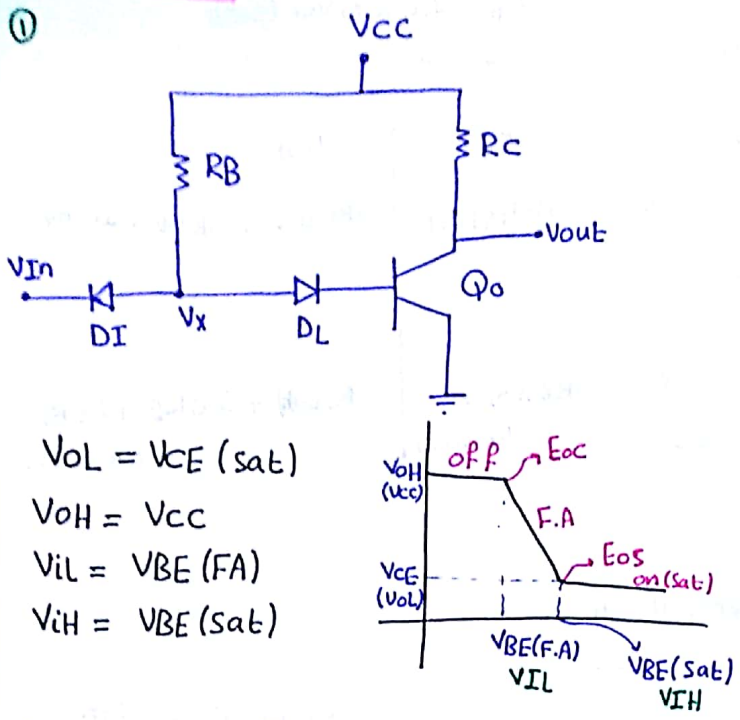 ①
VCC
RB
RC
Vout
VIn
DI
Vx
DL
Qo
VOL = VCE (sat)
VOH = VCC
ViL = VBE (FA)
ViH = VBE (Sat)
VOH
(Vcc)
off
Eoc
F.A
VCE
(VOL)
Eos
on(sat)
VBE(F.A)
VIL
VBE(Sat)
VIH